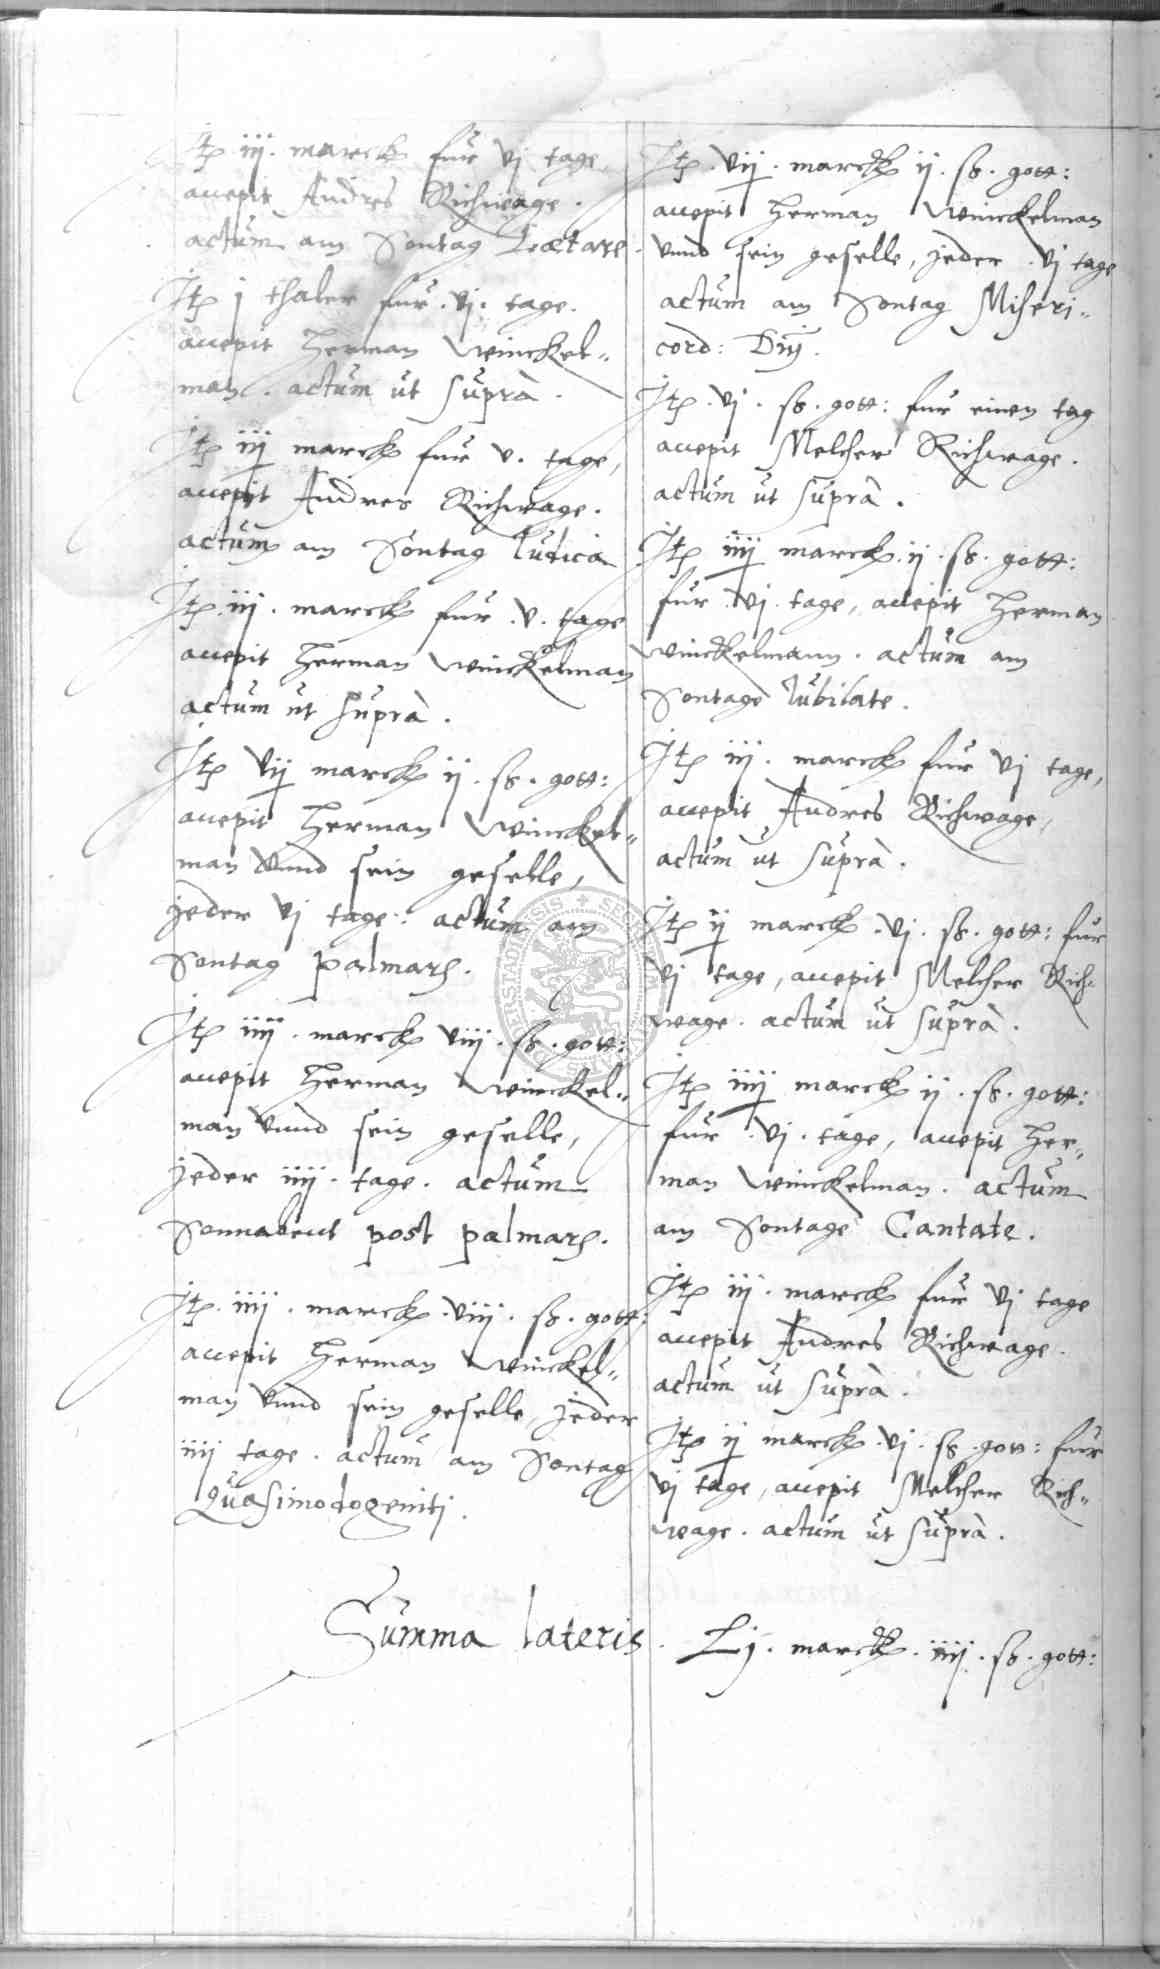 Jtp iij. marck fur vj tage,
accepit Andres Richwage.
actum am Sontag Laetare
Jtp j thaler fur .vj. tage.
accepit Herman Winckel„
man. actum ut suprà.
Jtp iij marck fur v. tage,
accepit Andres Richwage.
actum am Sontag Iudica
Jtp iij. marck fur .v. tage
accepit Herman Winckelman
actum ut suprà.
Jtp vij marck ij. sß. gott:
accepit Herman Winckel„
man vnnd sein geselle,
jeder vj tage: actum am
Sontag palmarum.
Jtp iiij. marck viij. sß. gott:
accepit Herman Winckel„
man vnnd sein geselle,
jeder iiij. tage. actum
Sonnabent post palmarum.
Jtp. iiij. marck. viij. sß. gott:
accepit Herman Winckel„
man vnnd sein geselle, jeder
iiij tage. actum am Sontag
Quasimodogeniti.
Jtp. vij. marck ij. sß. gott:
accepit Herman Winckelman
vnnd sein geselle, jeder .vj tage
actum am Sontag Miseri„
cord: Dnj.
Jtp. vj. sß. gott: fur einen tag
accepit Melcher Richwage.
actum ut suprà.
Jtp iiij marck ij. sß. gott:
fur .vj. tage, accepit Herman
Winckelmann. actum am
Sontage Iubilate.
Jtp iij. marck fur vj tage,
accepit Andres Richwage,
actum ut suprà.
Jtp ij marck .vj. sß. gott: fur
vj tage, accepit Melcher Rich„
wage. actum ut suprà.
Jtp iiij marck ij. sß. gott:
fur .vj. tage, accepit Her„
man Winckelman. actum
am Sontage Cantate.
Jtp iij. marck fur vj tage
accepit Andres Richwage.
actum ut suprà.
Jtp ij marck .vj. sß. gott: fur
vj tage, accepit Melcher Rich„
wage. actum ut suprà.
Summa lateris. Lj. marck. iiij. sß. gott: